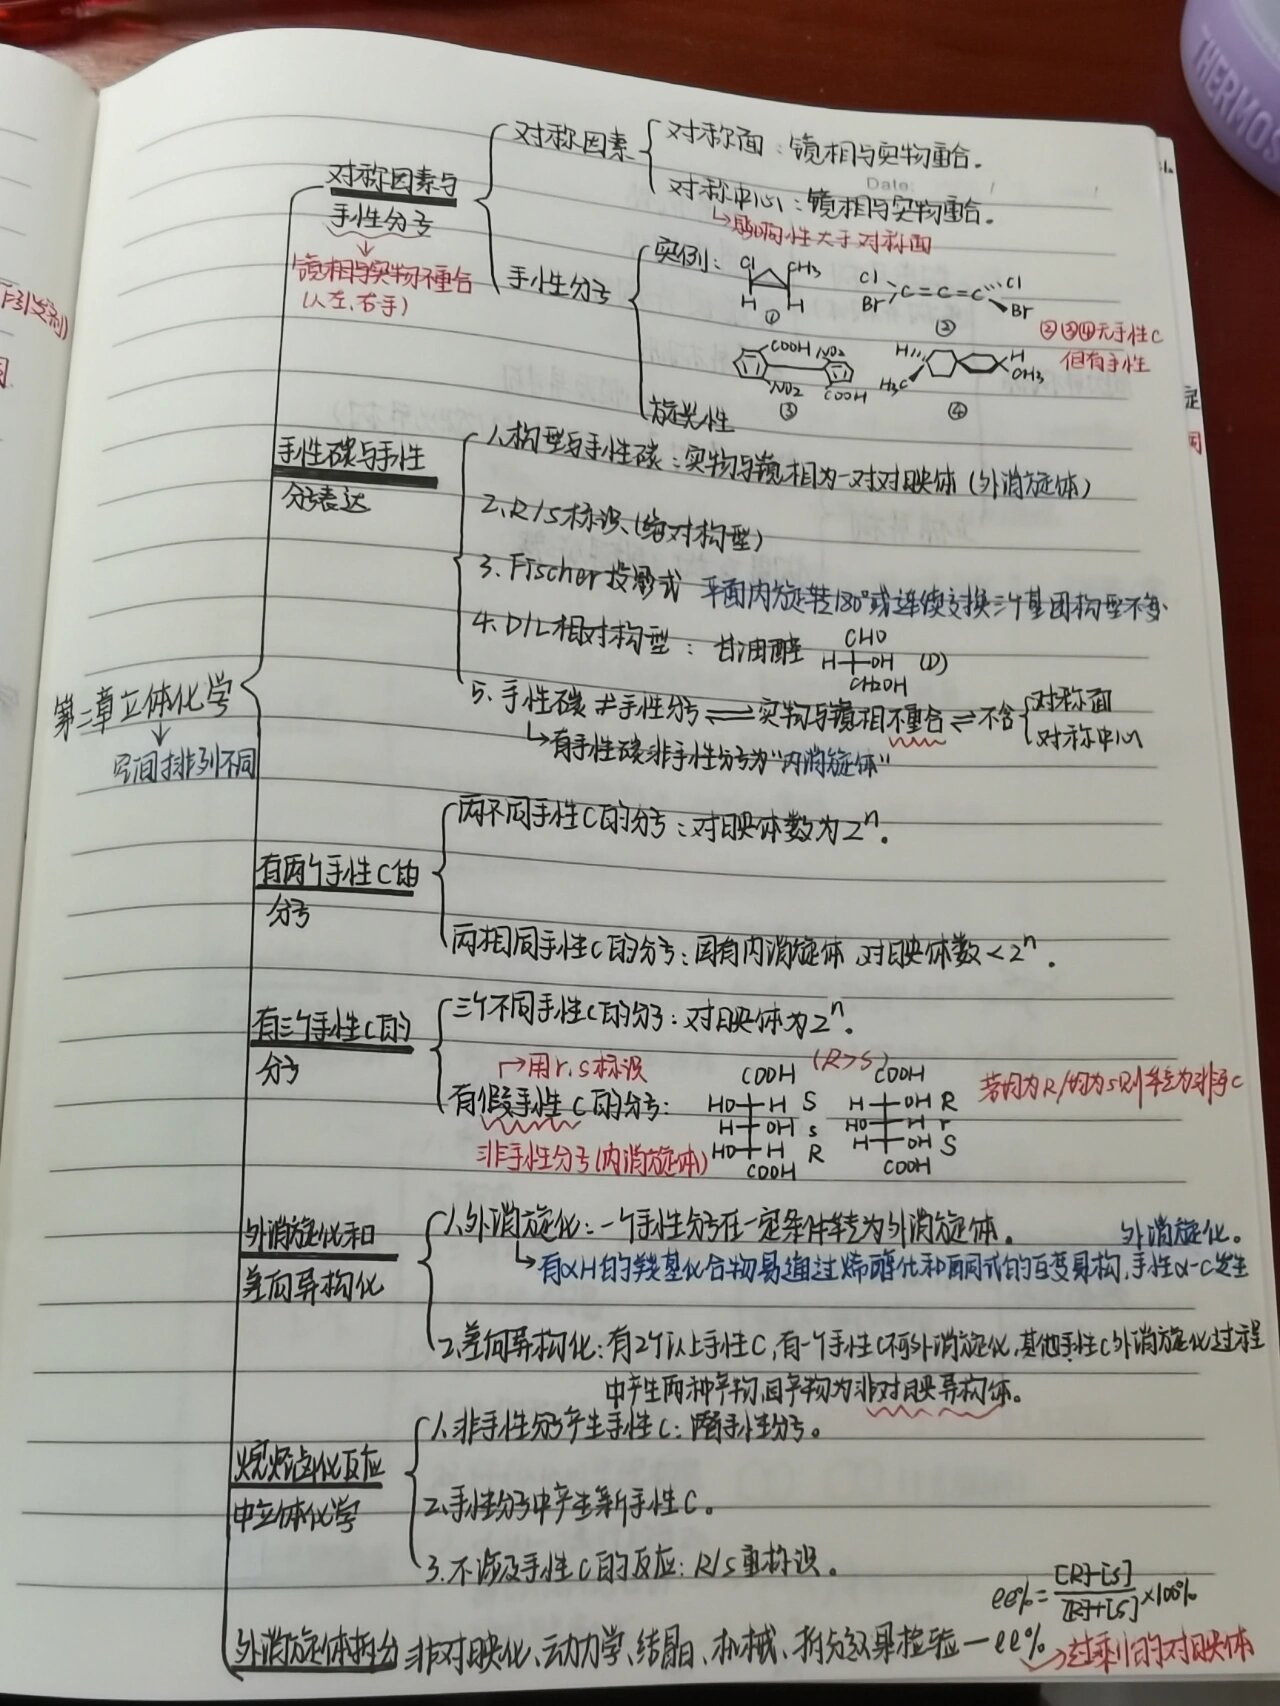 THERMOS
Date:
对称因素与
手性分子
镜相与实物不重合
(人左、右手)
对称因素
对称面：镜相与实物重合。
对称中心：镜相与实物重合。
影响性大于对称面
手性分子
实例：
Cl CH3
H H
①
Cl Br C=C=C Cl Br
②
COOH NO2
NO2 COOH
③
H H3C H CH3
④
②③④无手性C
但有手性
旋光性
手性碳与手性
分子表达
1.构型与手性碳：实物与镜相为一对对映体(外消旋体)
2.R/S标识(绝对构型)
3.Fischer投影式 平面内旋转180°或连续交换三个基团构型不变.
4.D/L相对构型：甘油醛
CHO
H OH (D)
CH2OH
5.手性碳≠手性分子⇌实物与镜相不重合⇌不含
对称面
对称中心
有手性碳非手性分子为"内消旋体"
第三章立体化学
空间排列不同
有两个手性C的
分子
两不同手性C的分子：对映体数为2ⁿ.
两相同手性C的分子：因有内消旋体,对映体数<2ⁿ.
有三个手性C的
分子
三个不同手性C的分子：对映体为2ⁿ.
用r,s标识
有假手性C的分子：
非手性分子(内消旋体)
(R>S)
COOH
HO H S
H OH s
HO H R
COOH
COOH
H OH R
HO H r
H OH S
COOH
若均为R/均为S则转为非手C
外消旋化和
差向异构化
1.外消旋化：一个手性分子在一定条件转为外消旋体。
外消旋化。
有αH的羰基化合物易通过烯醇化和酮式的互变异构,手性α-C发生
2.差向异构化：有2个以上手性C,有一个手性C不可外消旋化,其他手性C外消旋化过程
中产生两种产物,且产物为非对映异构体。
烷烃卤化反应
中立体化学
1.非手性分子产生手性C：手性分子。
2.手性分子中产生新手性C。
3.不涉及手性C的反应：R/S重标识。
ee%=[R]-[S]/[R]+[S]×100%
外消旋体拆分 非对映化、动力学、结晶、机械、拆分效果检验—ee%
过剩的对映体